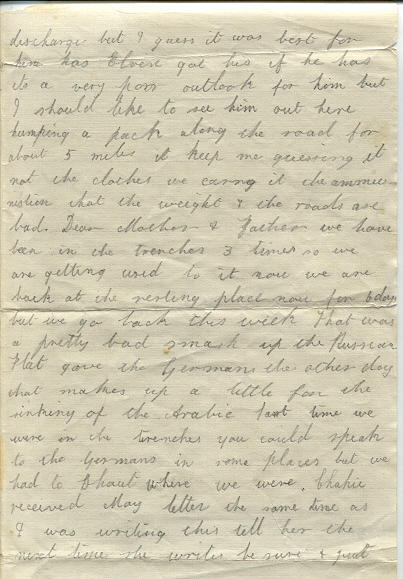 discharge but I guess it was best for
him has Elvere got his if he has
its a very poor outlook for him but
I should like to see him out here
humping a pack along the road for
about 5 miles it keep me guessing it
not the clothes we carry it the ammu
nition that the weight & the roads are
bad. Dear Mother & Father we have
been in the trenches 3 times so we
are getting used to it now we are
back at the resting place now for 6 days
but we go back this week That was
a pretty bad smash up the Russian
Flat gave the Germans the other day
that makes up a little for the
sinking of the Arabic last time we
were in the trenches you could speak
to the Germans in some places but we
had to Shout where we were.
received May letter the same time as
I was writing this tell her the
next time she writes be sure & put